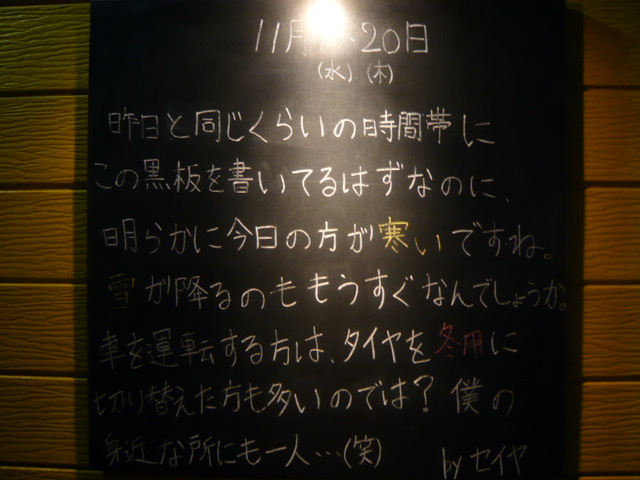 11月 20日
(水)(木)
昨日と同じくらいの時間帯に
この黒板を書いてるはずなのに、
明らかに今日の方が寒いですね。
雪が降るのももうすぐなんでしょうか。
車を運転する方は、タイヤを冬用に
切り替えた方も多いのでは?僕の
身近な所にも一人…(笑)
by セイヤ